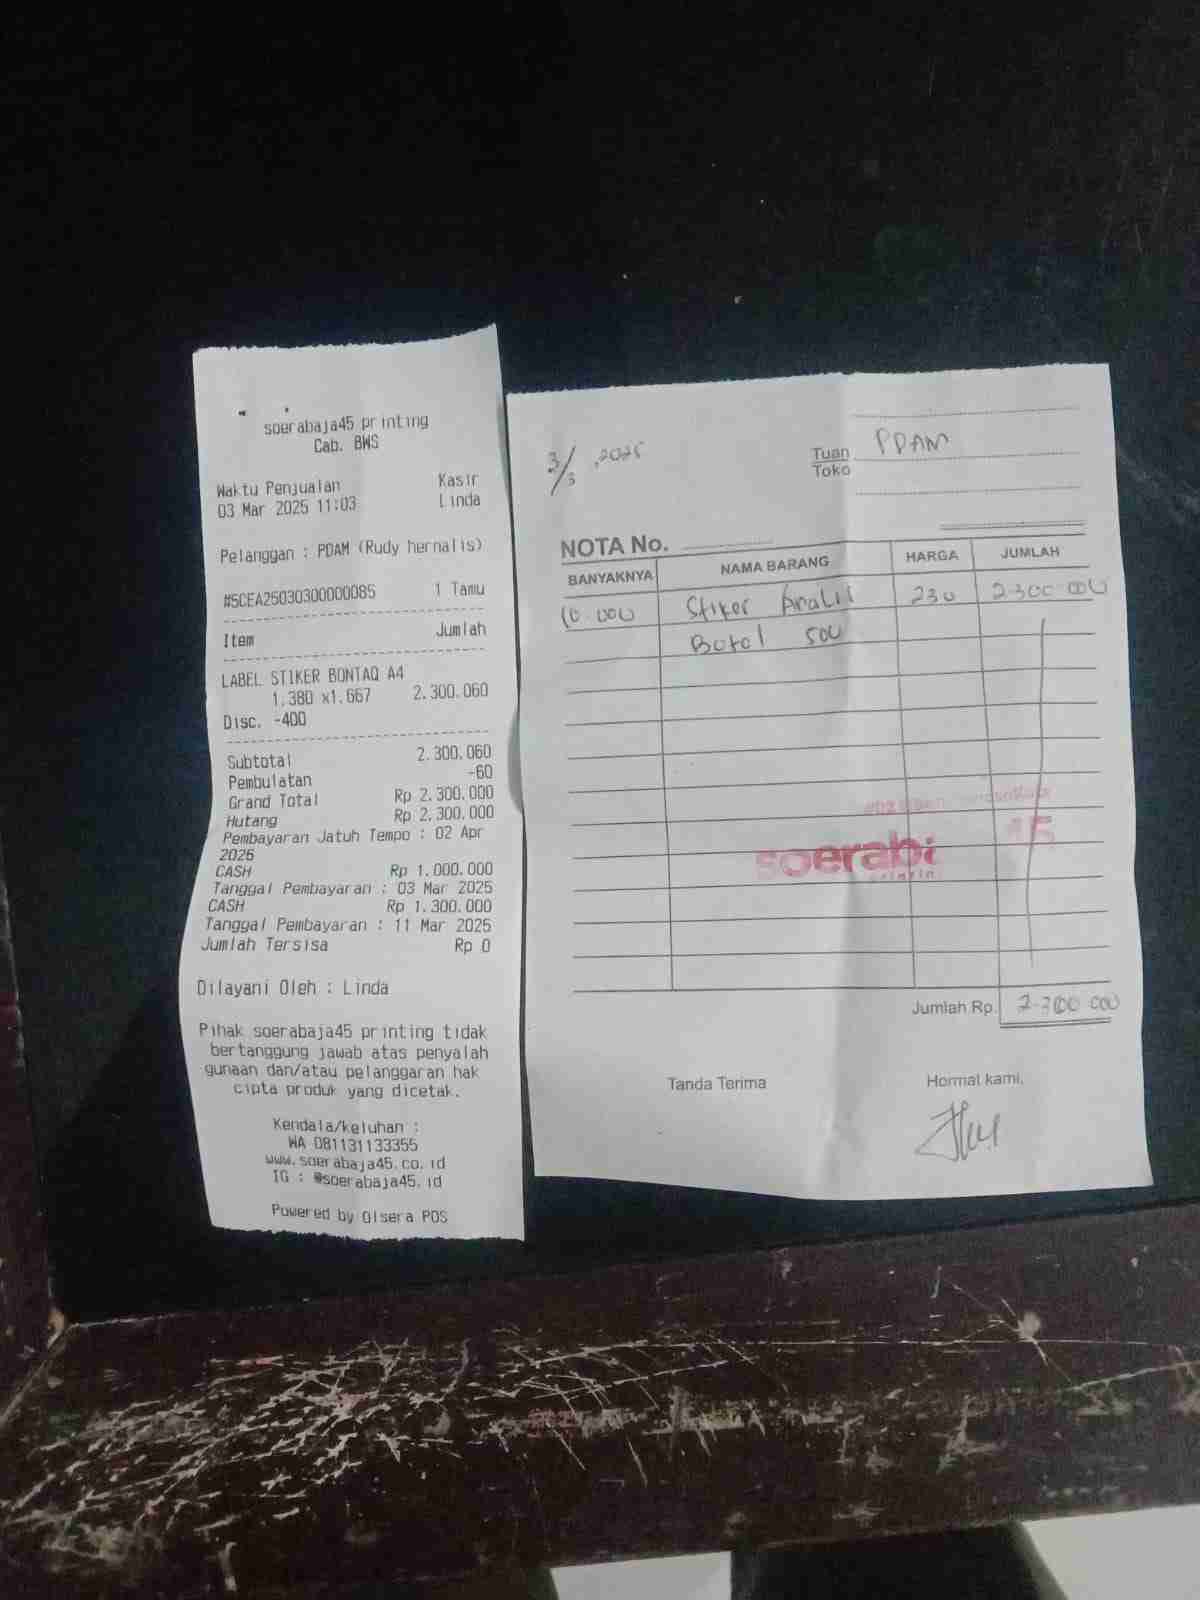 soerabaja45 printing
Cab. BWS
Waktu Penjualan Kasir
03 Mar 2025 11:03 Linda
Pelanggan : PDAM (Rudy hernalis)
#5CEA25030300000085 1 Tamu
Item Jumlah
LABEL STIKER BONTAQ A4
1.380 x1.667 2.300.060
Disc. -400
Subtotal 2.300.060
Pembulatan -60
Grand Total Rp 2.300.000
Hutang Rp 2.300.000
Pembayaran Jatuh Tempo : 02 Apr
2026
CASH Rp 1.000.000
Tanggal Pembayaran : 03 Mar 2025
CASH Rp 1.300.000
Tanggal Pembayaran : 11 Mar 2025
Jumlah Tersisa Rp 0
Dilayani Oleh : Linda
Pihak soerabaja45 printing tidak
bertanggung jawab atas penyalah
gunaan dan/atau pelanggaran hak
cipta produk yang dicetak.
Kendala/keluhan :
WA 081131133355
www.soerabaja45.co.id
IG : @soerabaja45.id
Powered by Olsera POS
3/3 , 2025
Tuan PDAM
Toko
NOTA No.
BANYAKNYA NAMA BARANG HARGA JUMLAH
10.000 Stiker 230 2.300.000
Botol 500
soerabaj 45
Jumlah Rp. 2.300.000
Tanda Terima Hormat kami,